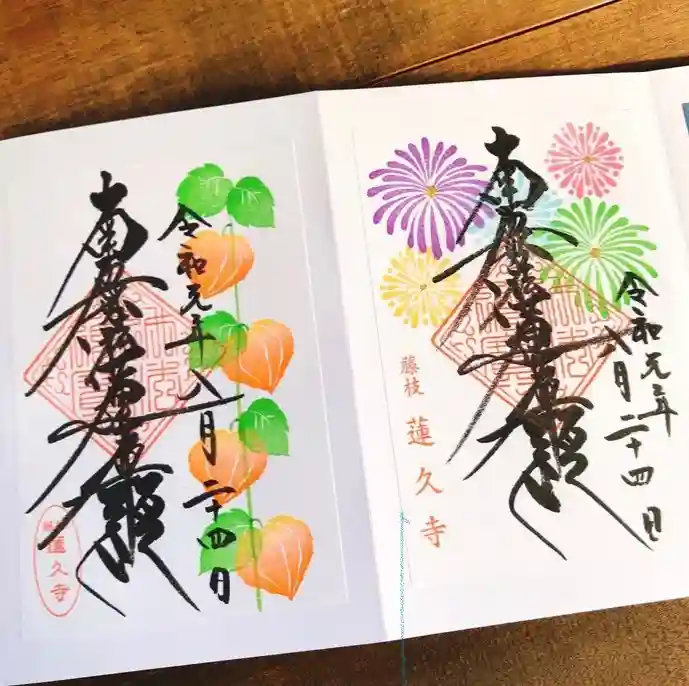 令和元年八月二十四日
南無妙法蓮華経
蓮久寺
令和元年
八月二十四日
南無妙法蓮華経
藤枝
蓮久寺